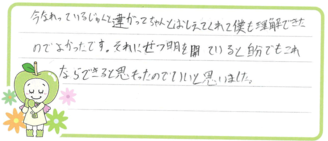 今なれっているじゅくと違かってちゃんとおしえてくれて僕も理解できた
のでよかったです。それにせつ明を聞いていると自分でもこれ
ならできると思ったのでいいと思いました。